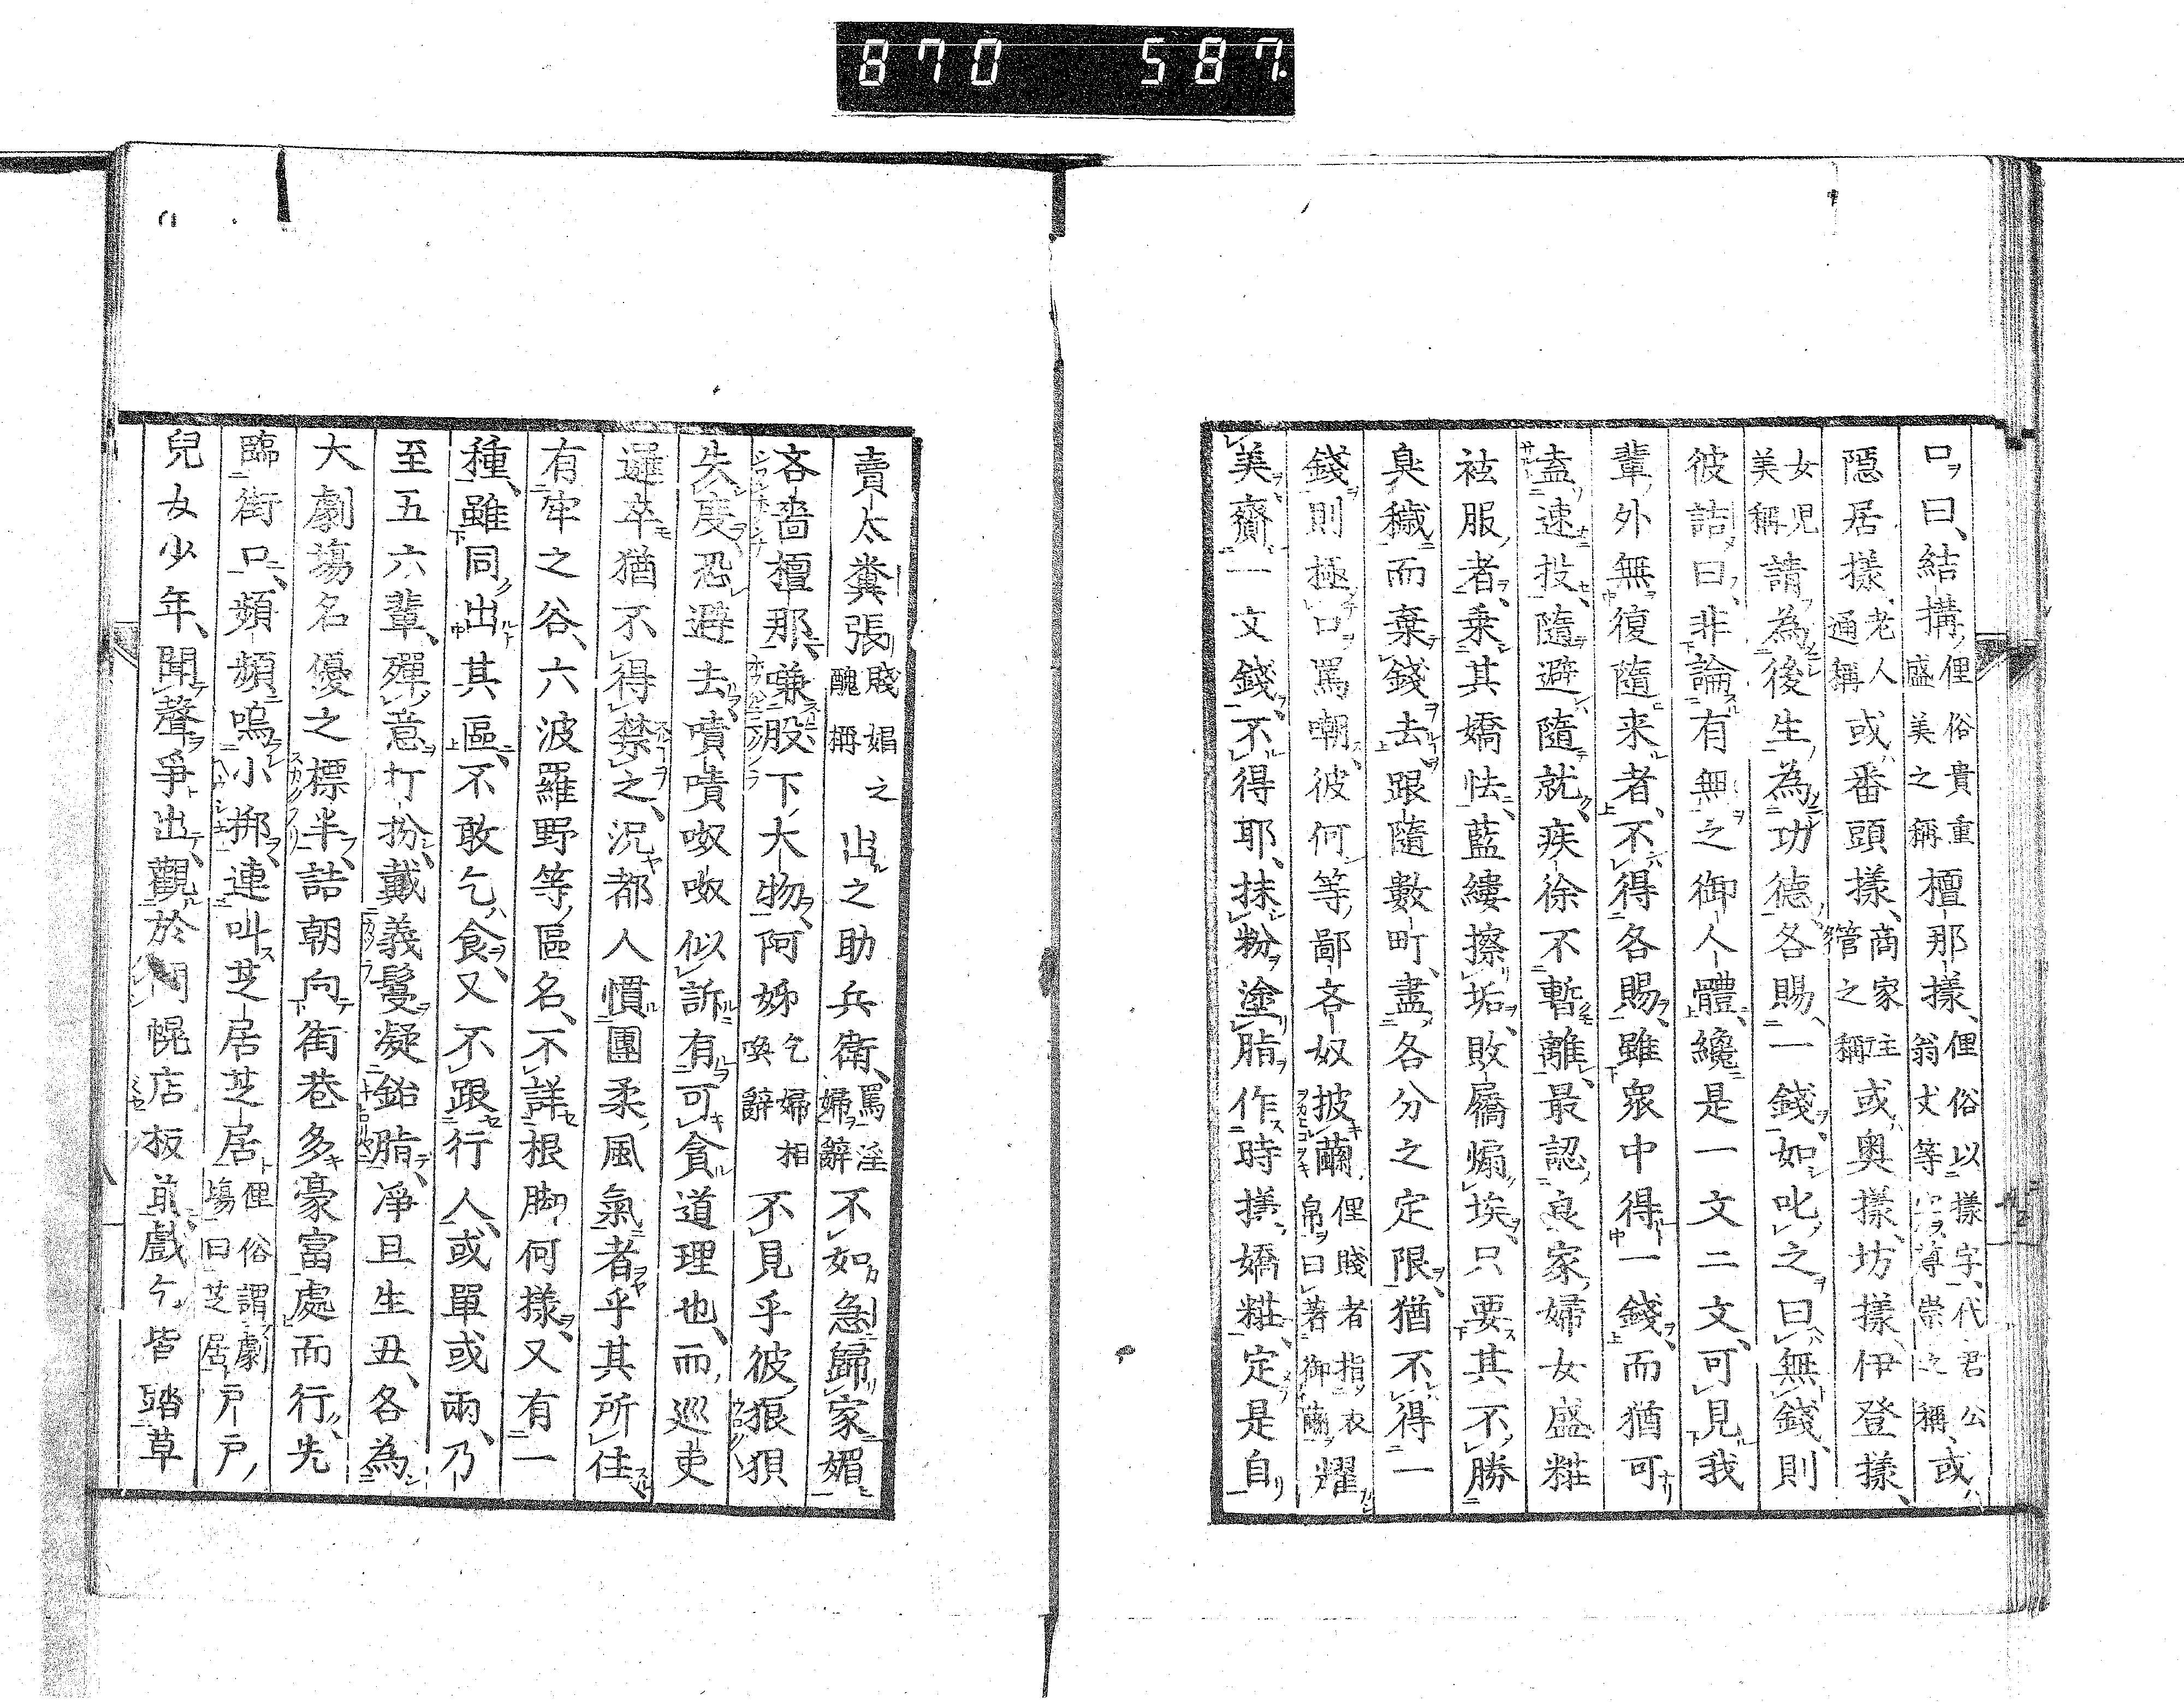 870 587
口曰、結搆俚俗貴重盛美之稱檀那樣、俚俗以樣字代君公翁丈等尊崇之稱、或
隱居樣、老人通稱或番頭樣、商家主管之稱或奥樣、坊樣、伊登樣、
女児美稱請為後生為功德各賜一錢、如叱之曰無錢、則
彼詰曰、非論有無之御人體、纔是一文二文、可見我
輩外無復隨来者、不得各賜、雖衆中得一錢、而猶可
盍速投、隨避隨就、疾徐不暫離、最認良家婦女盛粧
袨服者、乗其嬌怯、藍縷擦垢、敗屩煽埃、只要其不勝
臭穢而棄錢去、跟隨數町、盡各分之定限、猶不得一
錢則極口罵嘲、彼何等鄙吝奴披繭俚賤者指衣帛曰著御繭耀
美齎一文錢不得耶、抹粉塗脂作時撲、嬌粧定是自
賣太糞張賤娼之醜稱出之助兵衛、罵淫婦辭不如急歸家媚
吝嗇檀那、嗛股下大物、阿姊乞婦相喚辭不見乎彼狼狽
失度恐避去、嘖嘖呶呶似訴有可貪道理也、而巡吏
邏卒猶不得禁之、况都人慣團柔風氣者乎其所住
有牢之谷、六波羅野等區名、不詳根脚何樣、又有一
種、雖同出其區、不敢乞食、又不跟行人、或單或兩、乃
至五六輩、殫意打扮、戴義鬘凝鉛脂、淨旦生丑、各為
大劇塲名優之標半、詰朝向街巷多豪富處而行、先
臨街口、頻頻嗚小梆連叫芝居芝居俚俗謂劇塲曰芝居戸戸
兒女少年、聞聲爭出、觀於門幌店板前戲乞皆踏草